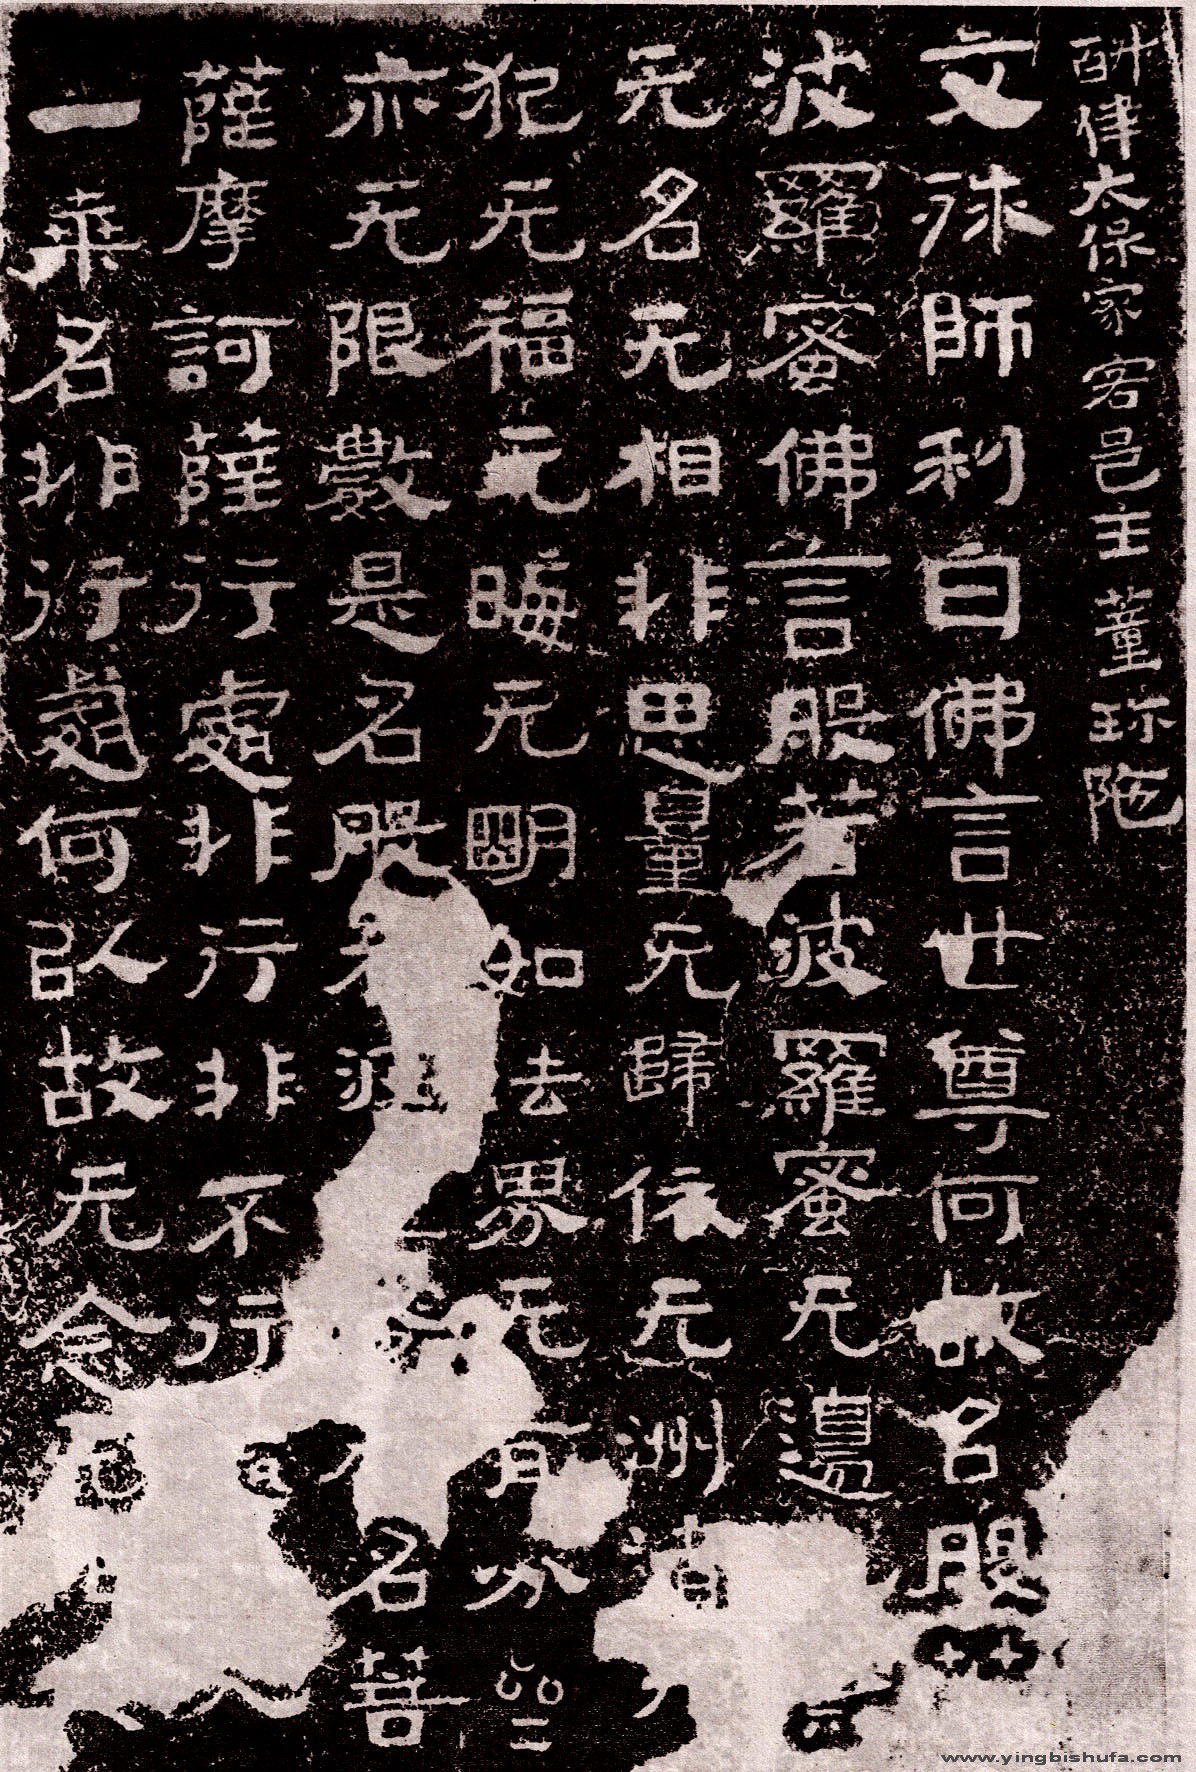 斛律太保家客邑主董珍陁
文殊師利白佛言世尊何故名般
波羅蜜佛言般若波羅蜜无邊
无名无相非思量无歸依无洲渚
犯无福无晦无明如法界无有分
亦无限數是名般若波名菩
薩摩訶薩行處非行非不行
一乘名非行處何以故无念
www.yingbishufa.com